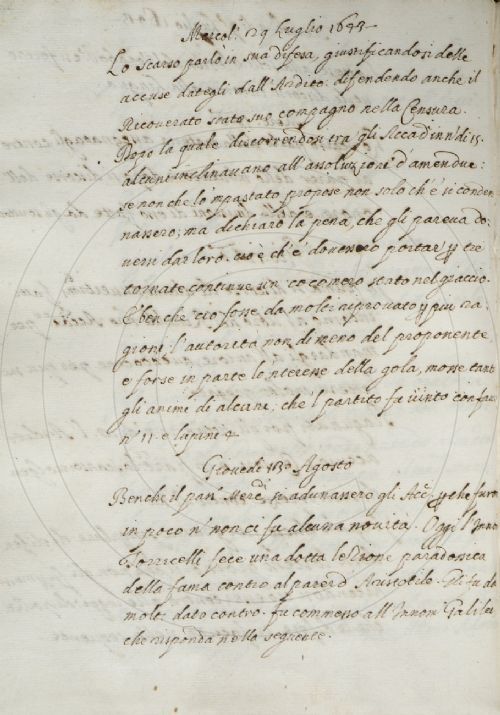 Mercol: 29 Luglio 1644
Lo Scarso parlò in sua difesa, giustificandosi delle
accuse dategli dall'Ardito: difendendo anche il
Ricoverato stato suo compagno nella Censura.
Dopo la quale discorrendosi tra gli Accad.
alcuni inclinavano all'assoluzzione d'amendue:
se non che lo 'mpastato propose non solo ch'e' si conden
nassero; ma dichiarò la pena, che gli pareva do
versi dar loro. cio è ch'e' dovessero portar p tre
tornate continue un cocomero stato nel giaccio.
E benche ciò fosse da molti approvato p più ra
gioni, l'autorità non di meno del proponente
e forse in parte lo nteresse della gola, mosse tanto
gli animi di alcuni, che 'l partito fu vinto con fave
n° 11 e lupini 4
Giovedì Agosto
Benche il pas. Merc. si adunassero gli Acc. p che furo
in poco n° non ci fu alcuna novità. Oggi l'Inno
Torricelli fece una dotta lezione paradossica
della fama contro al parer d'Aristotile. Gli fu da
molti dato contro. fu commesso all'Innom Galilei
che risponda nella seguente.